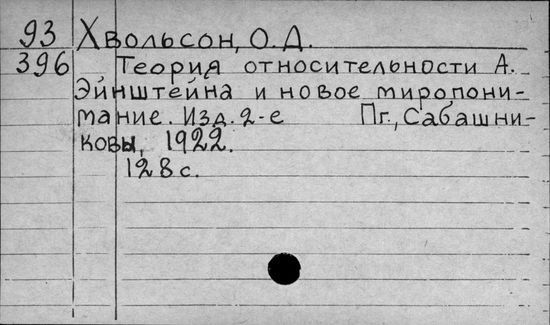 93 Хвольсон, О.Д.
396 Теория относительности А.
Эйнштейна и новое миропони-
мание. Изд. 2-е Пг., Сабашни-
ковы, 1922.
128 с.